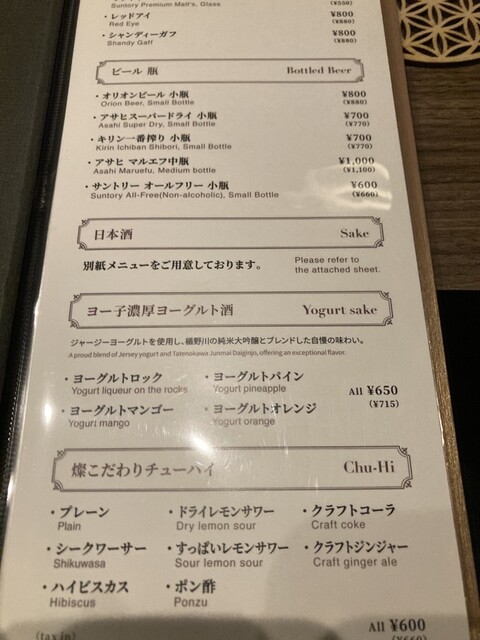 Suntory Premium Malt's, Glass (¥550)
・レッドアイ ¥800
Red Eye (¥880)
・シャンディーガフ ¥800
Shandy Gaff (¥880)
ビール 瓶 Bottled Beer
・オリオンビール 小瓶 ¥800
Orion Beer, Small Bottle (¥880)
・アサヒスーパードライ 小瓶 ¥700
Asahi Super Dry, Small Bottle (¥770)
・キリン一番搾り 小瓶 ¥700
Kirin Ichiban Shibori, Small Bottle (¥770)
・アサヒ マルエフ中瓶 ¥1,000
Asahi Maruefu, Medium bottle (¥1,100)
・サントリー オールフリー 小瓶 ¥600
Suntory All-Free(Non-alcoholic), Small Bottle (¥660)
日本酒 Sake
別紙メニューをご用意しております。 Please refer to
the attached sheet.
ヨー子濃厚ヨーグルト酒 Yogurt sake
ジャージーヨーグルトを使用し、楯野川の純米大吟醸とブレンドした自慢の味わい。
A proud blend of Jersey yogurt and Tatenokawa Junmai Daiginjo, offering an exceptional flavor.
・ヨーグルトロック ・ヨーグルトパイン
Yogurt liqueur on the rocks Yogurt pineapple All ¥650
・ヨーグルトマンゴー ・ヨーグルトオレンジ (¥715)
Yogurt mango Yogurt orange
燦こだわりチューハイ Chu-Hi
・プレーン ・ドライレモンサワー ・クラフトコーラ
Plain Dry lemon sour Craft coke
・シークワーサー ・すっぱいレモンサワー ・クラフトジンジャー
Shikuwasa Sour lemon sour Craft ginger ale
・ハイビスカス ・ポン酢
Hibiscus Ponzu
All ¥600
(tax in) (¥660)